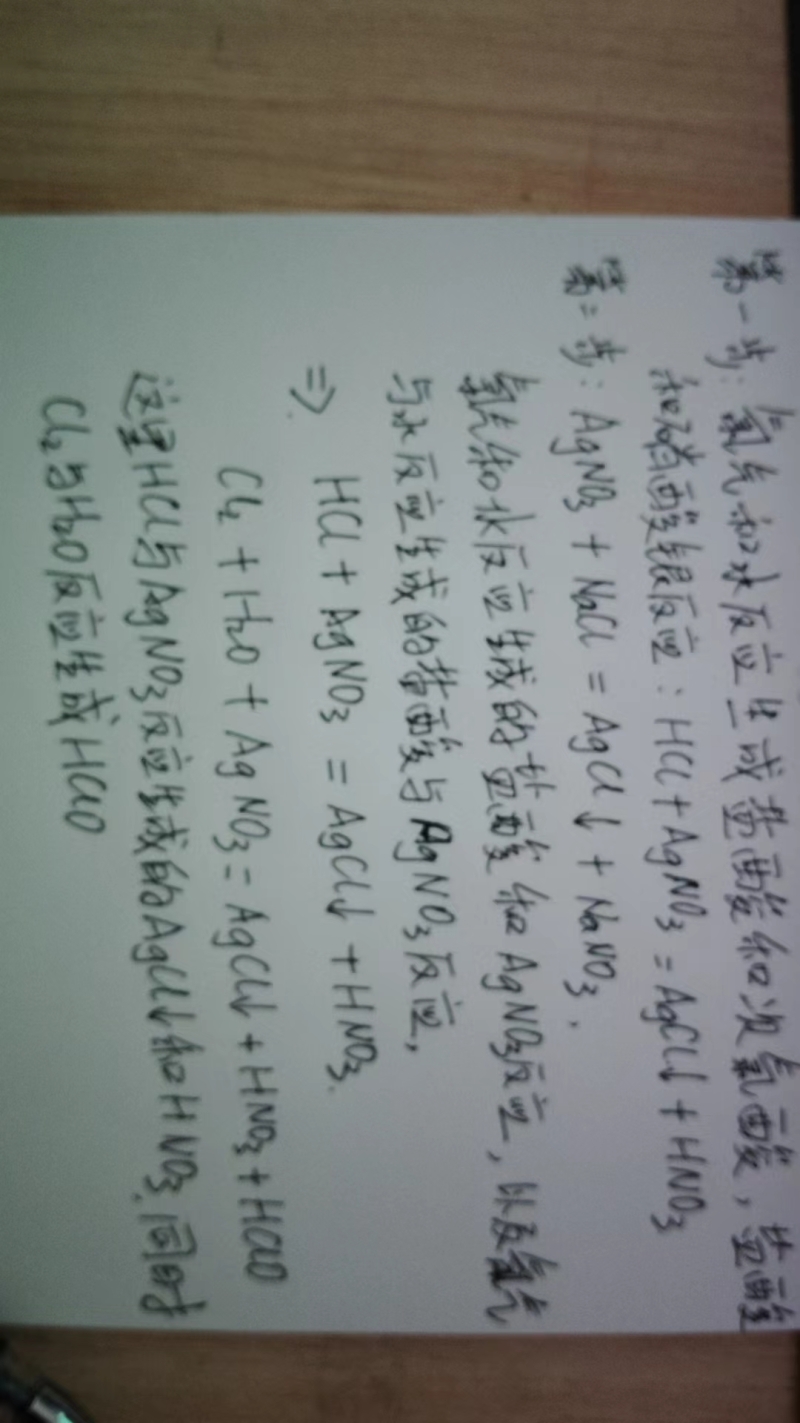 第一步：氯气和水反应生成盐酸和次氯酸，盐酸
和硝酸银反应：HCl + AgNO₃ = AgCl↓ + HNO₃
第二步：AgNO₃ + NaCl = AgCl↓ + NaNO₃.
氯气和水反应生成的盐酸和AgNO₃反应，以及氯气
与水反应生成的盐酸与AgNO₃反应，
⇒ HCl + AgNO₃ = AgCl↓ + HNO₃.
Cl₂ + H₂O + AgNO₃ = AgCl↓ + HNO₃ + HClO
这里HCl与AgNO₃反应生成的AgCl↓和HNO₃.同时
Cl₂与H₂O反应生成HClO